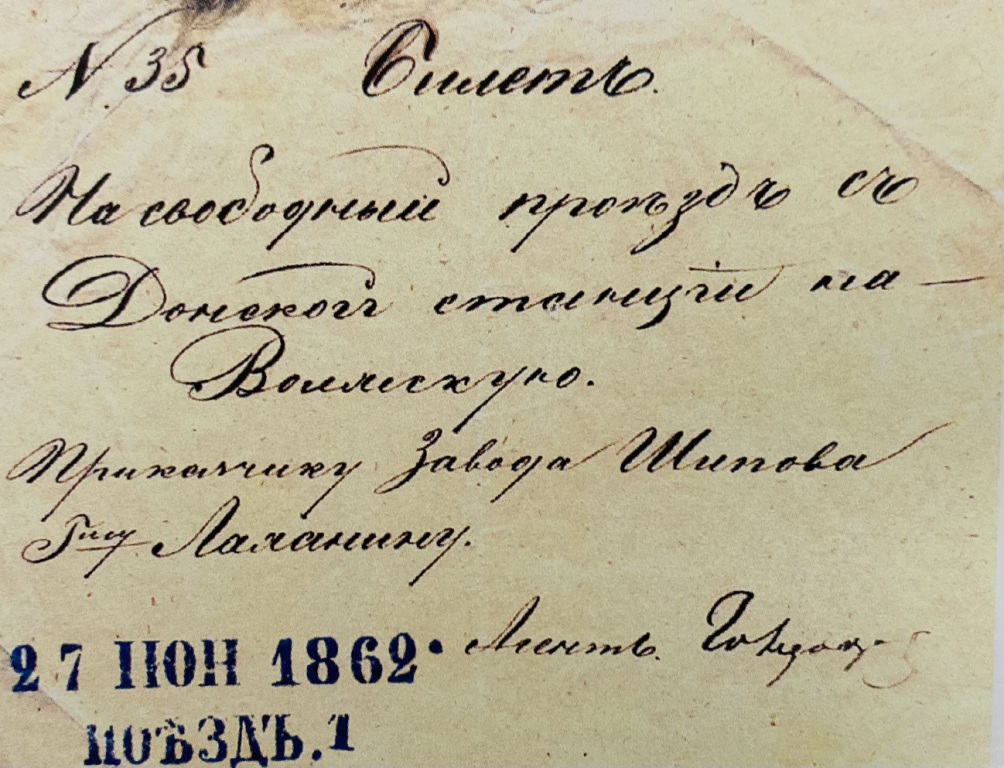 N. 35 Билетъ.
На свободный проѣздъ съ
Донской станціи на
Волжскую.
Прикащику Завода Шипова
Гну Лаланину.
Агентъ.
27 ІЮН 1862.
ПОѢЗДЪ. 1